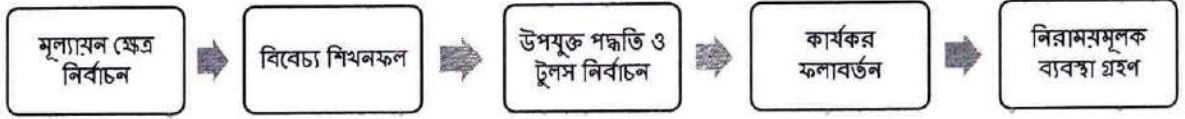 মূল্যায়ন ক্ষেত্র
নির্বাচন
বিবেচ্য শিখনফল
উপযুক্ত পদ্ধতি ও
টুলস নির্বাচন
কার্যকর
ফলাবর্তন
নিরাময়মূলক
ব্যবস্থা গ্রহণ